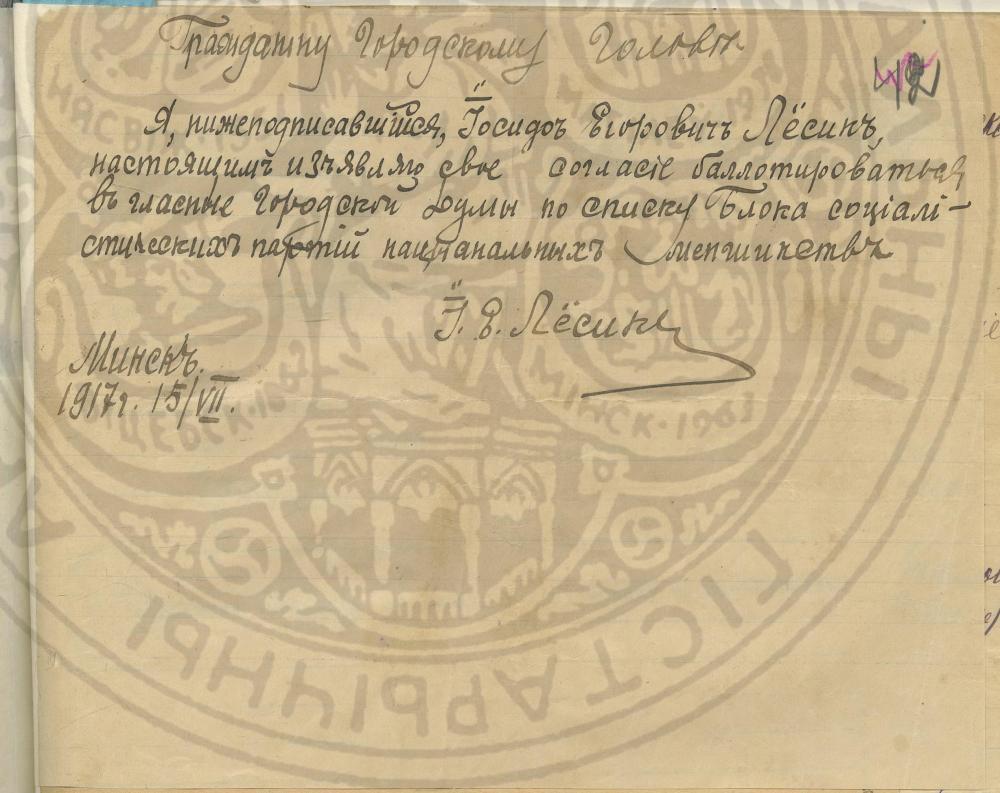 Гражданину Городскому Головѣ
42
Я, нижеподписавшійся, Іосидоъ Егоровичъ Лёсикъ,
настоящимъ изъявляю свое согласіе баллотироваться
въ гласные Городской Думы по списку Блока соціалі-
стическихъ партій націанальныхъ меншинствъ
І. Е. Лёсикъ
Минскъ.
1917г. 15/VII.
МІНСК · 1963
ГІСТАРЫЧНЫ